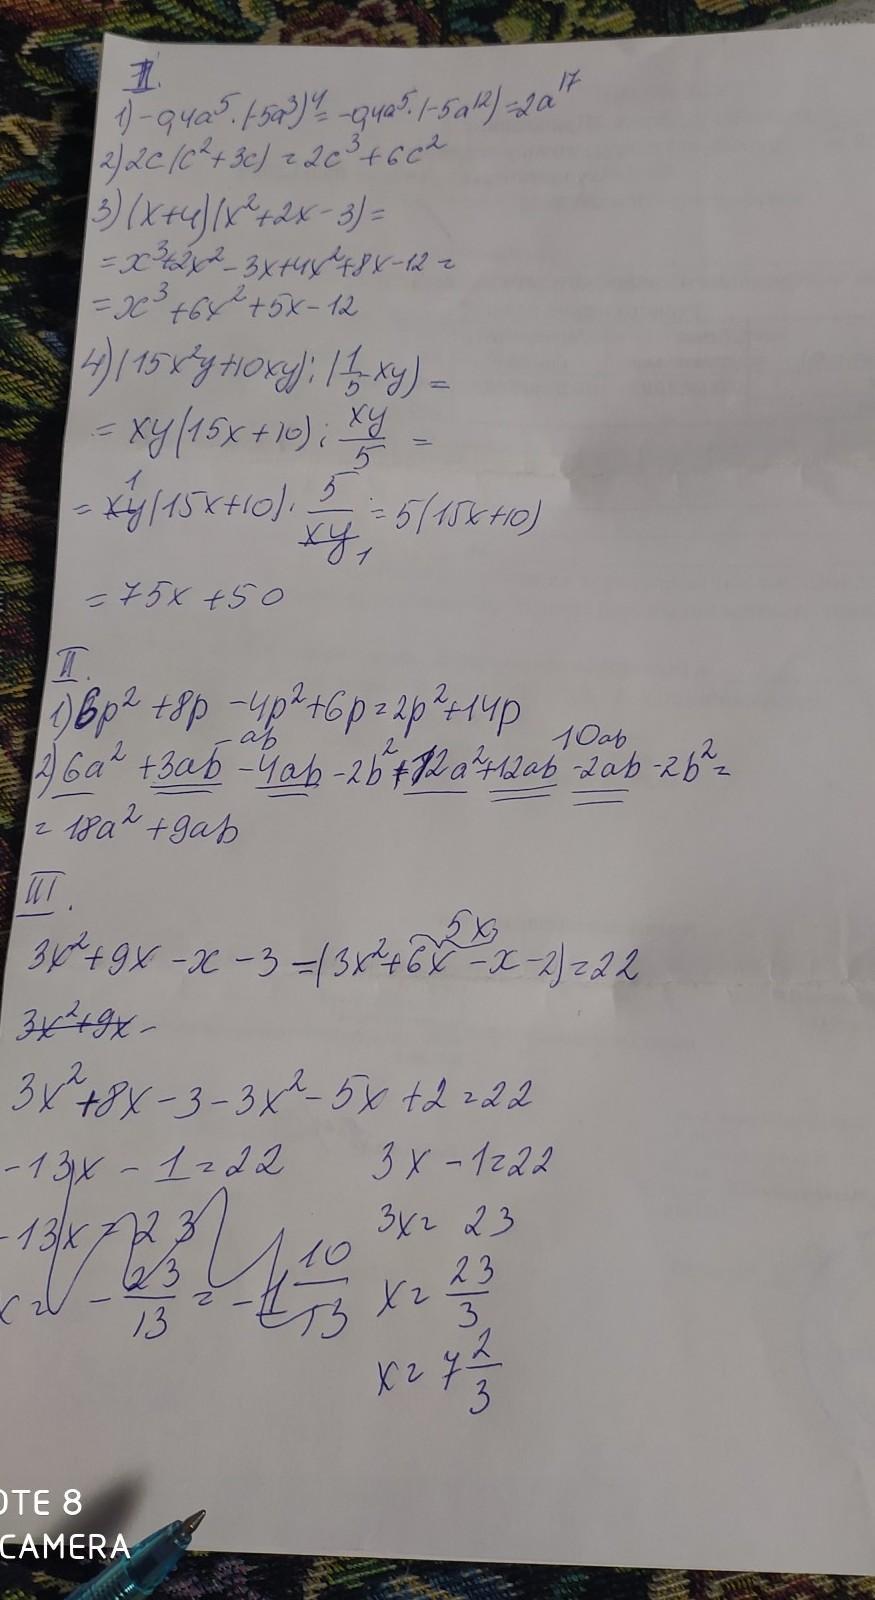 I.
1) -0,4a⁵·(-5a³)⁴ = -0,4a⁵·(-5a¹²) = 2a¹⁷
2) 2c(c²+3c) = 2c³+6c²
3) (x+4)(x²+2x-3) =
= x³+2x²-3x+4x²+8x-12 =
= x³+6x²+5x-12
4) (15x²y+10xy):(1/5 xy) =
= xy(15x+10): xy/5 =
= xy(15x+10)· 5/xy = 5(15x+10)
1 1
= 75x+50
II.
1) 6p²+8p-4p²+6p = 2p²+14p
-ab 10ab
2) 6a²+3ab-4ab-2b²+12a²+12ab-2ab-2b² =
= 18a²+9ab
III.
5x
3x²+9x-x-3 -(3x²+6x-x-2) = 22
3x²+9x-
3x²+8x-3-3x²-5x+2 = 22
-13x-1 = 22 3x-1 = 22
-13x = 23 3x = 23
x = -23/13 = -1 10/13 x = 23/3
x = 7 2/3
OTE 8
CAMERA